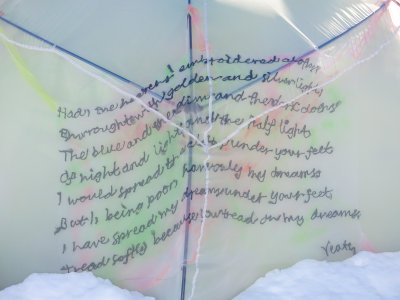 Had I the heavens' embroidered cloths
Enwrought with golden and silver light
The blue and the dim and the dark cloths
Of night and light and the half light
I would spread the cloths under your feet
But I, being poor, have only my dreams
I have spread my dreams under your feet
tread softly because you tread on my dreams
Yeats